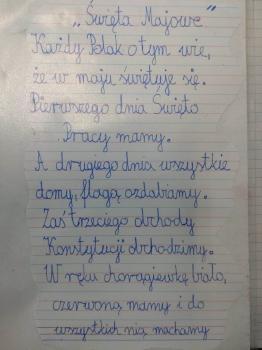 „Święta Majowe”
Każdy Polak o tym wie,
że w maju świętuje się.
Pierwszego dnia Święto
Pracy mamy.
A drugiego dnia wszystkie
domy, flagą ozdabiamy.
Zaś trzeciego obchody
Konstytucji obchodzimy.
W ręku chorągiewkę biało,
czerwoną mamy i do
wszystkich nią machamy